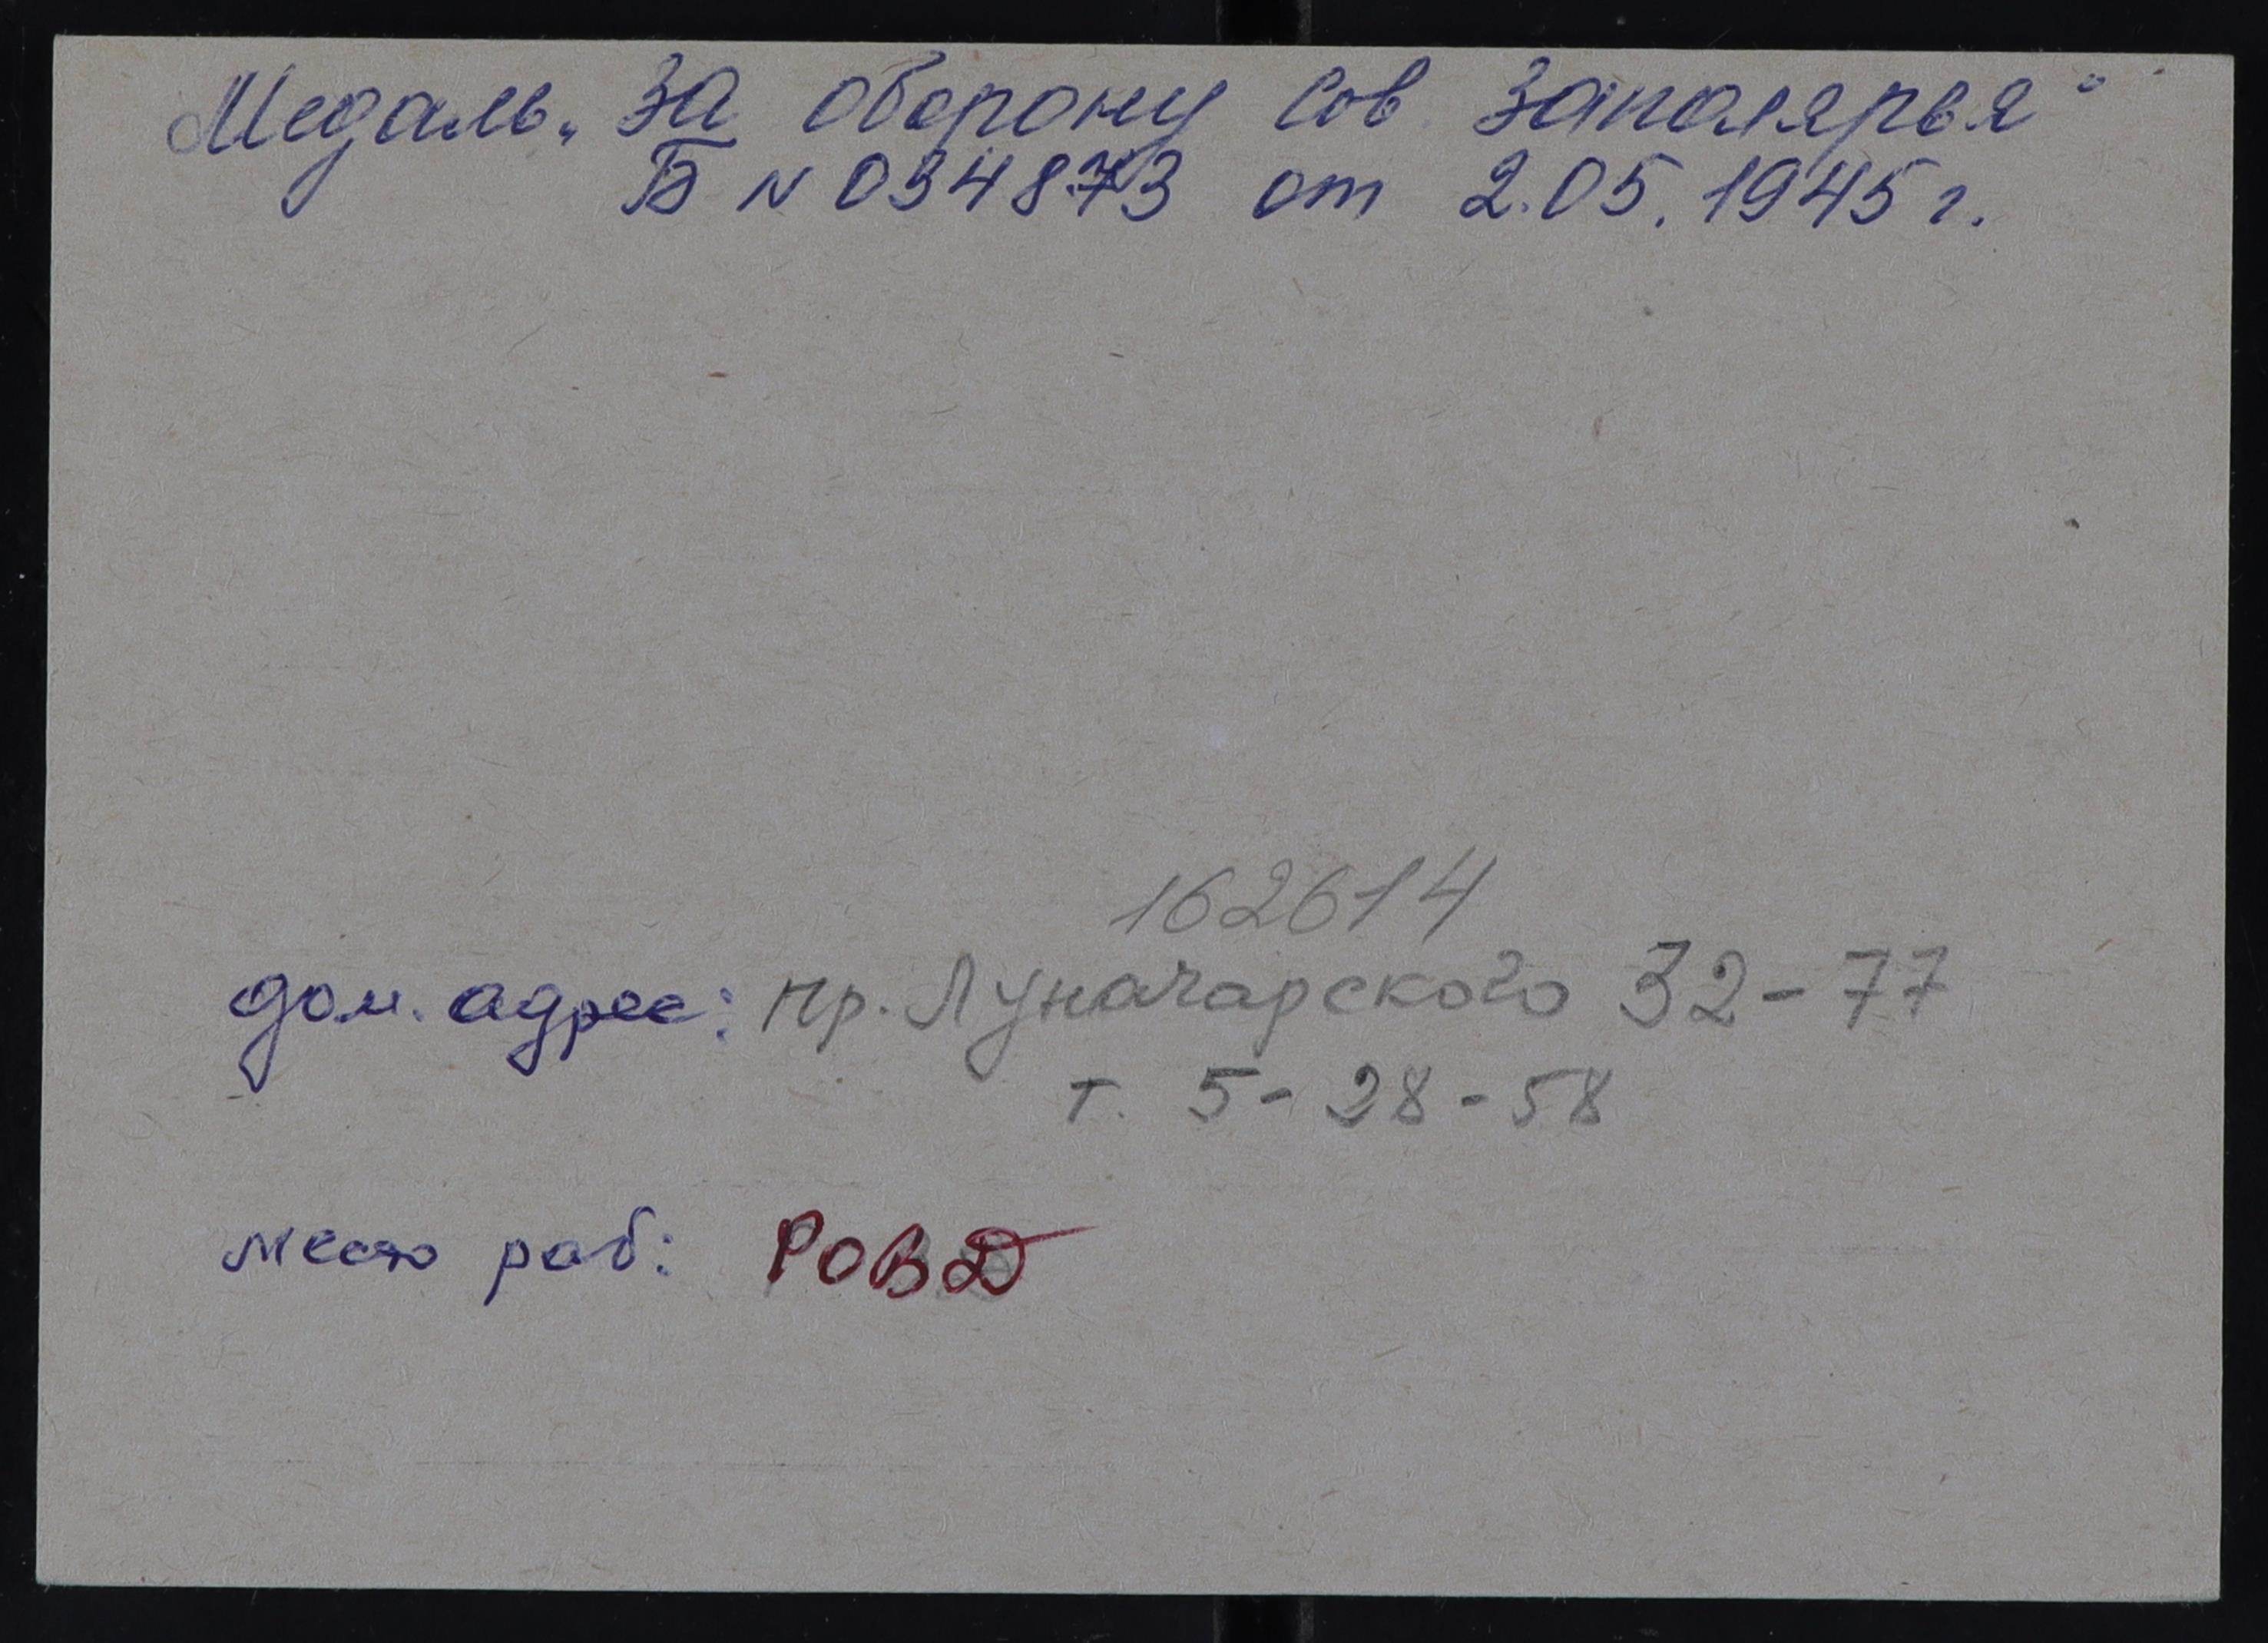 Медаль „За оборону Сов Заполярья“
Б № 034873 от 2.05.1945 г.
162614
дом. адрес: пр. Луначарского 32-77
т. 5-28-58
место раб: РОВД